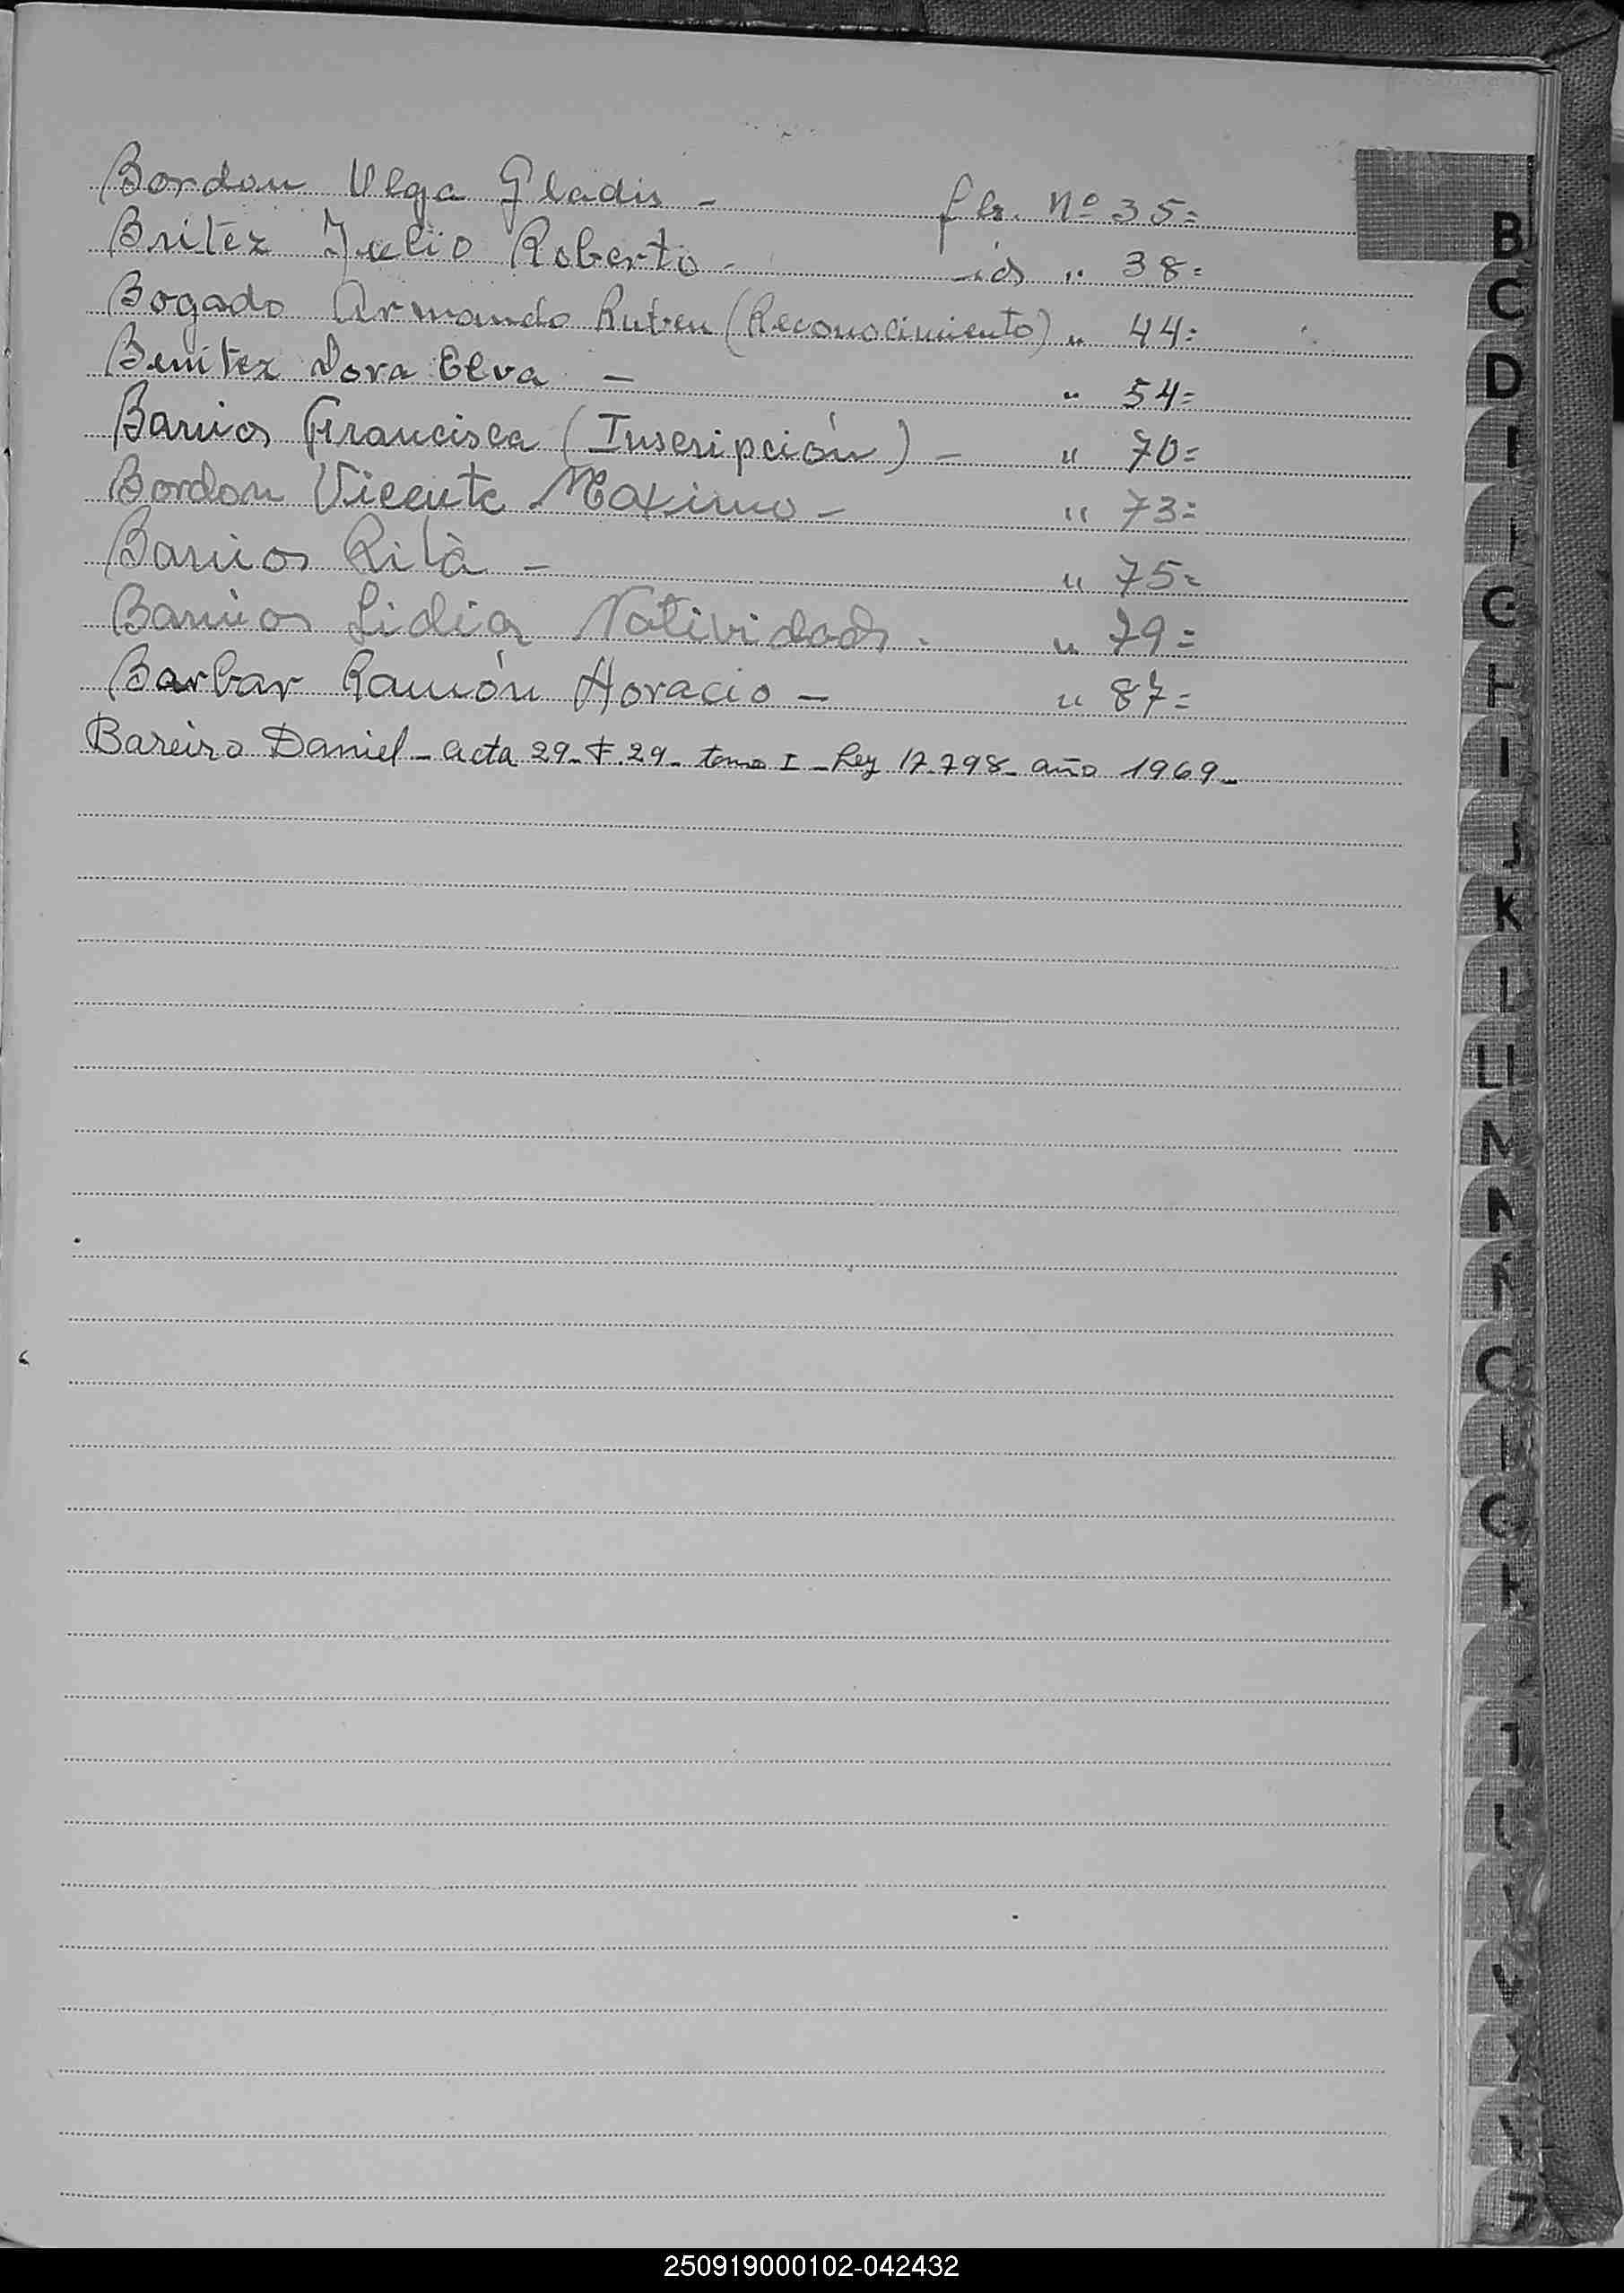 Bordon Olga Gladis - fls. Nº 35=
Britez Julio Roberto - id " 38=
Bogado Armando Ruben (Reconocimiento) " 44=
Benitez Dora Elva - " 54=
Barrios Francisca (Inscripción) - " 70=
Bordon Vicente Maximo - " 73=
Barrios Rita - " 75=
Barrios Lidia Natividad. " 79=
Barbar Ramón Horacio - " 87=
Bareiro Daniel - acta 29 - F. 29 - tomo I - Ley 17.798 - año 1969 -
B
C
D
G
H
I
J
K
L
LL
M
N
Ñ
O
Q
R
V
X
Z
250919000102-042432